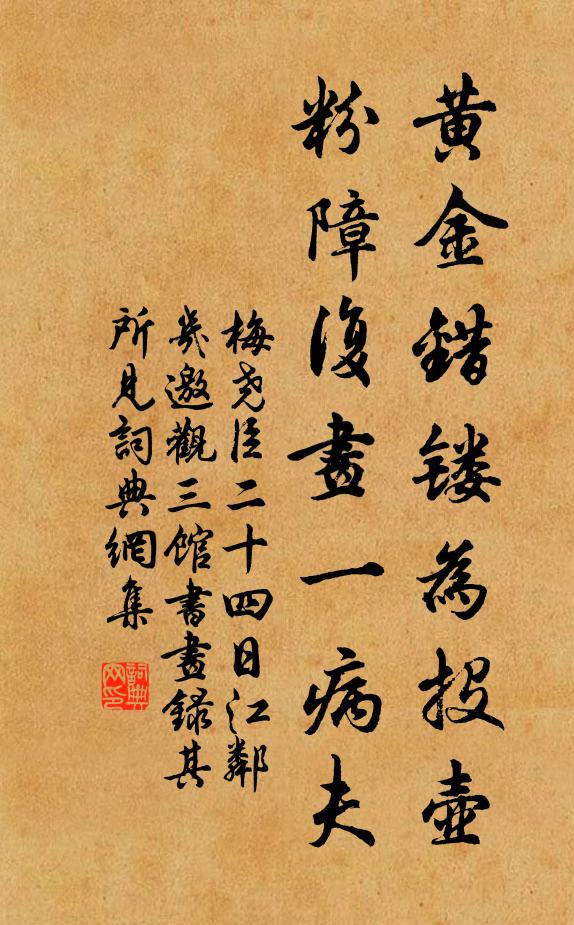 黄金錯镂為投壺
粉障復畫一病夫
梅尧臣二十四日江鄰
幾邀觀三館書畫錄其
所見詞典網集
詞典网印